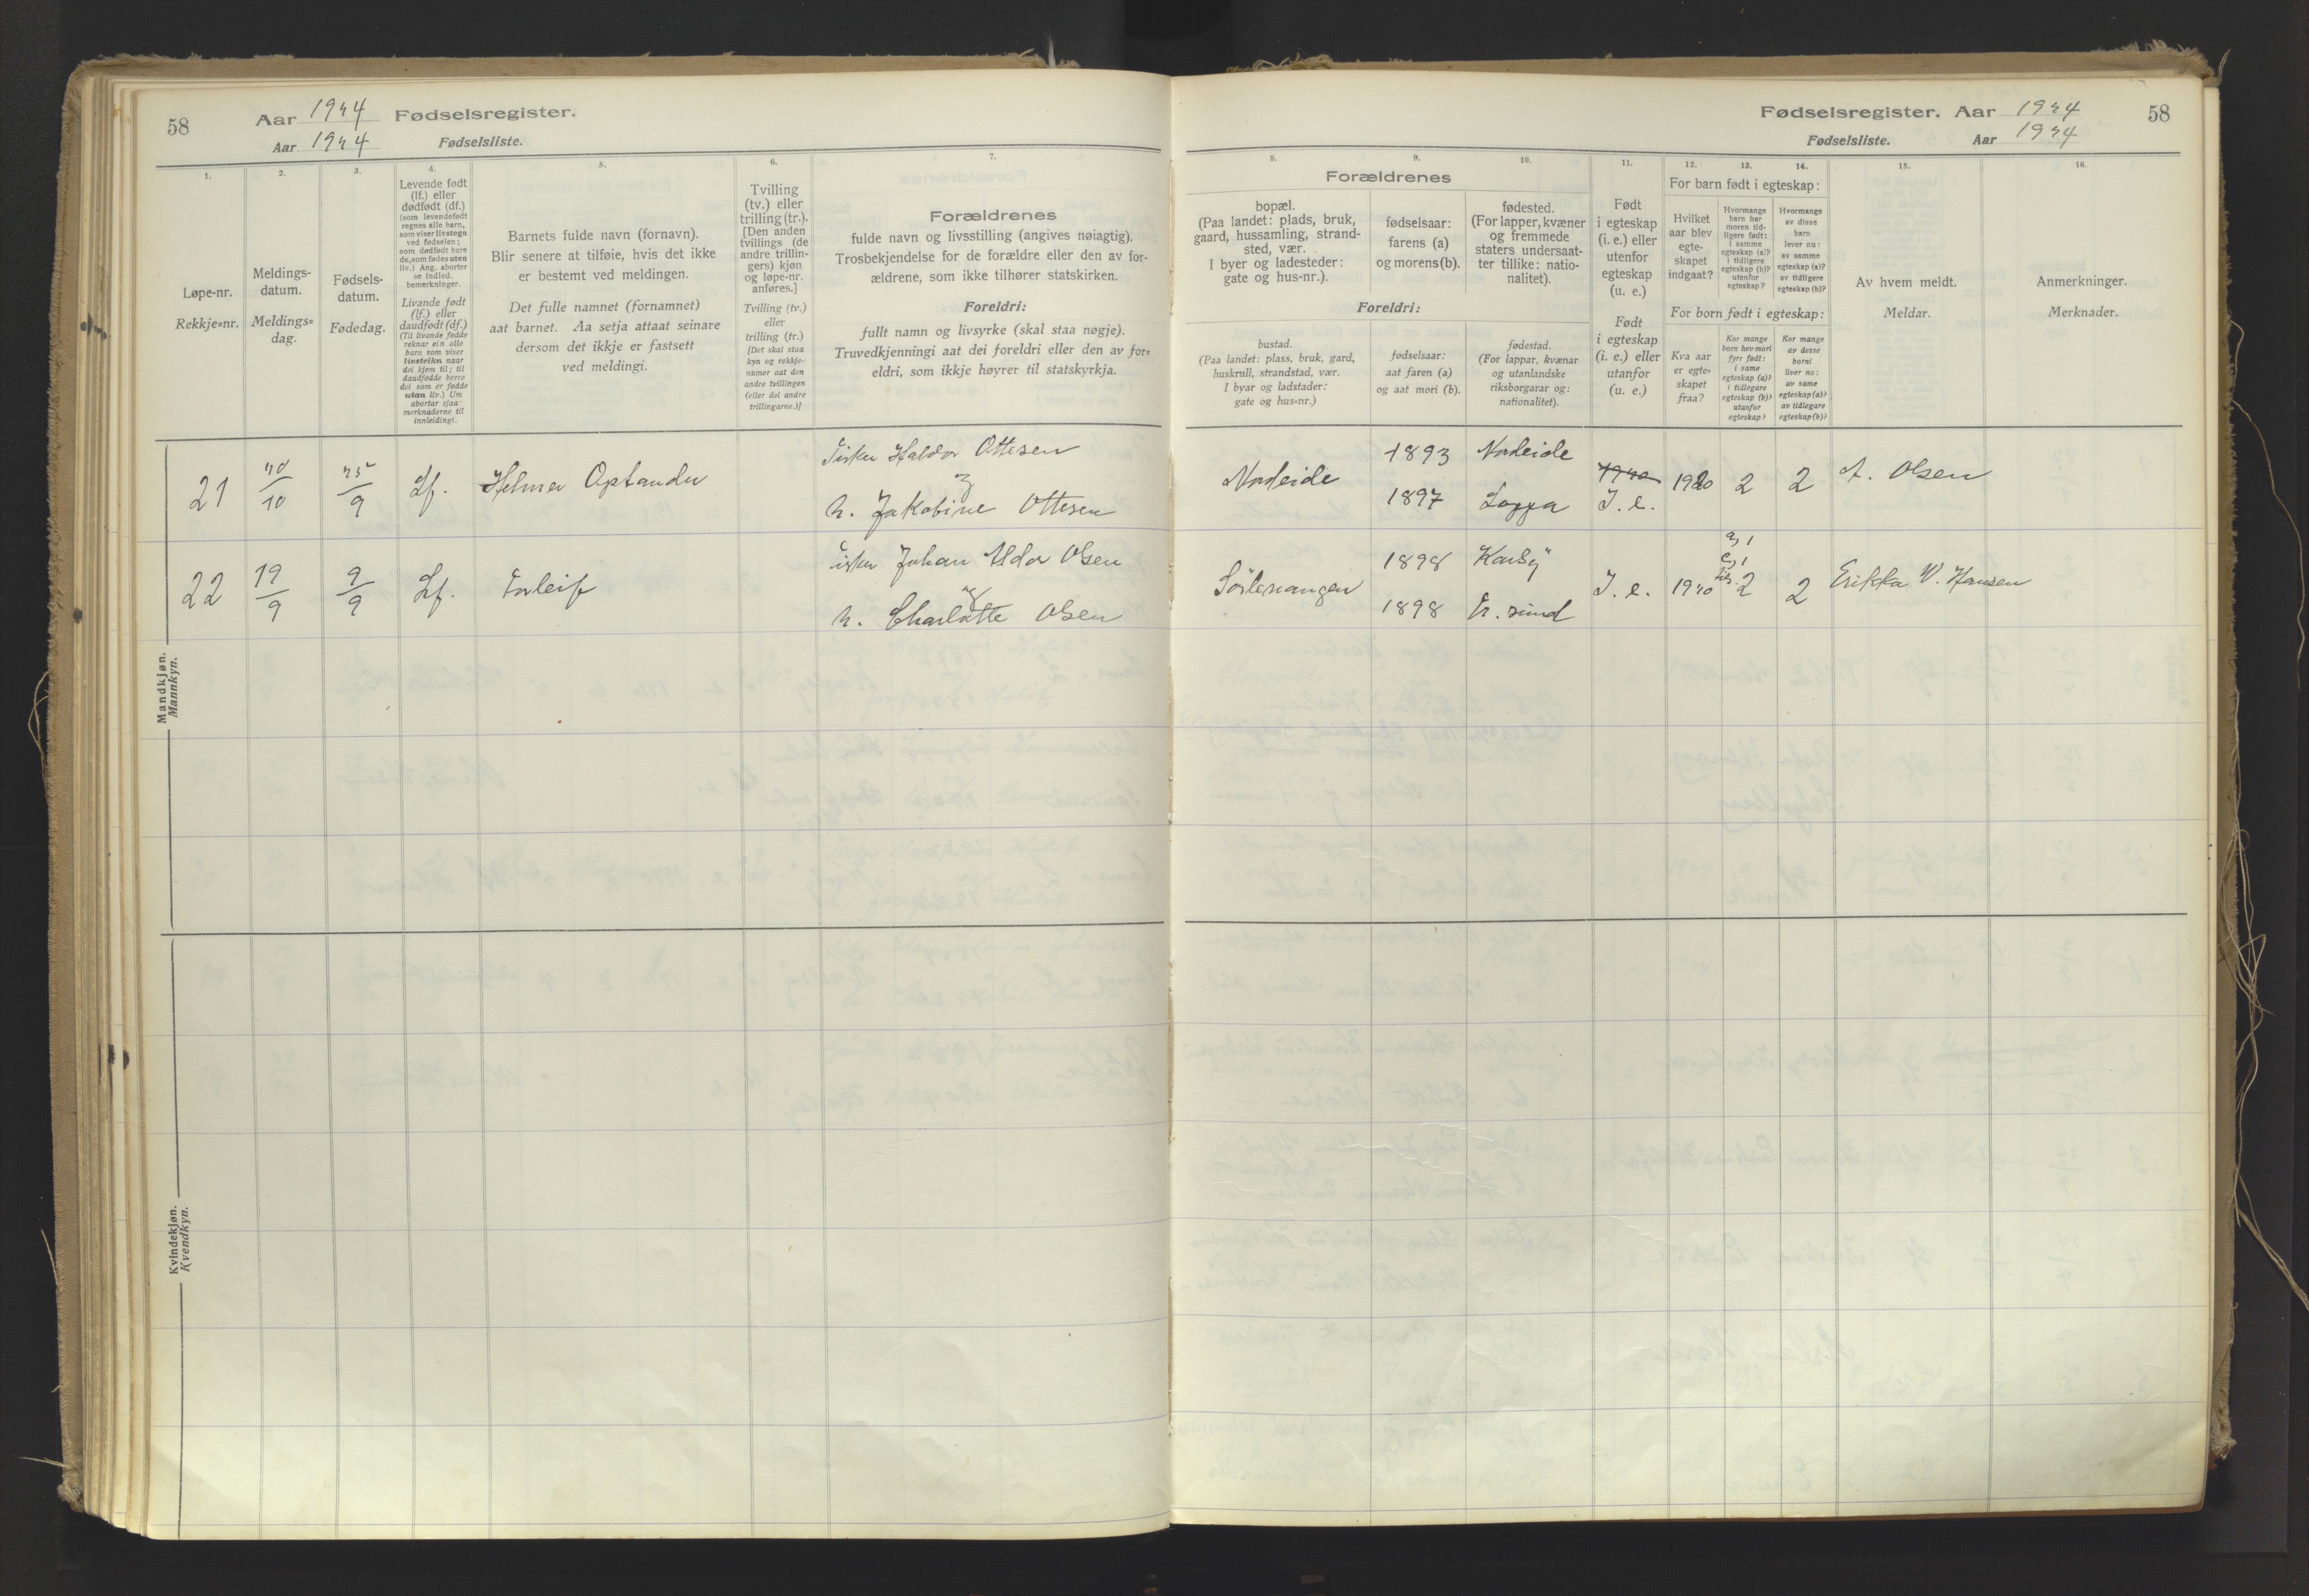 58
Aar 1924 Fødselsregister.
Aar 1924 Fødselsliste.
1.
2.
3.
4.
5.
6.
7.
Løpe-nr.
Rekkje-nr.
Meldings-
datum.
Meldings-
dag.
Fødsels-
datum.
Fødedag.
Levende født
(lf.) eller
dødfødt (df.)
(som levendefødt
regnes alle barn,
som viser livstegn
ved fødselen;
som dødfødt bare
de, som fødes uten
liv.) Ang. aborter
se indled.
bemerkninger.
Livande født
(lf.) eller
daudfødt (df.)
(Til livande fødde
reknar ein alle
barn som viser
livsteikn naar
dei kjem til; til
daudfødde berre
dei som er fødde
utan liv.) Um
abortar sjaa
merknaderne til
innleidingi.
Barnets fulde navn (fornavn).
Blir senere at tilføie, hvis det ikke
er bestemt ved meldingen.
Det fulle namnet (fornamnet)
aat barnet. Aa setja attaat seinare
dersom det ikkje er fastsett
ved meldingi.
Tvilling
(tv.) eller
trilling (tr.).
[Den anden
tvillings (de
andre trillin-
gers) kjøn
og løpe-nr.
anføres.]
Tvilling (tv.)
eller
trilling (tr.)
[Det skal staa
kyn og rekkje-
numer aat den
andre tvillingen
(eller dei andre
trillingarne.)]
Forældrenes
fulde navn og livsstilling (angives nøiagtig).
Trosbekjendelse for de forældre eller den av for-
ældrene, som ikke tilhører statskirken.
Foreldri:
fullt namn og livsyrke (skal staa nøgje).
Truvedkjenningi aat dei foreldri eller den av for-
eldri, som ikkje høyrer til statskyrkja.
Mandkjøn.
Mannkyn.
21 20/10 25/9 Lf. Helmer
Fisker Haldor Ottesen
h. Jakobine Ottesen
22 19/9 9/9 Lf. Torleif
Fisker Johan Aldor Olsen
og
h. Charlotte Olsen
Kvindekjøn.
Kvendkyn.
Fødselsregister. Aar 1924
58
Fødselsliste. Aar 1924
8.
9.
10.
11.
12.
13.
14.
15.
16.
Forældrenes
bopæl.
(Paa landet: plads, bruk,
gaard, hussamling, strand-
sted, vær.
I byer og ladesteder:
gate og hus-nr.).
fødselsaar:
farens (a)
og morens (b).
fødested.
(For lapper, kvæner
og fremmede
staters undersaat-
ter tillike: natio-
nalitet).
Foreldri:
bustad.
(Paa landet: plass, bruk, gard,
huskrull, strandstad, vær.
I byar og ladstader:
gate og hus-nr.)
fødselsaar:
aat faren (a)
og aat mori (b).
fødestad.
(For lappar, kvænar
og utanlandske
riksborgarar og:
nationalitet).
Født
i egteskap
(i. e.) eller
utenfor
egteskap
(u. e.)
Født
i egteskap
(i. e.) eller
utanfor
(u. e.)
For barn født i egteskap:
Hvilket
aar blev
egte-
skapet
indgaat?
Hvormange
barn har
moren tid-
ligere født:
i samme
egteskap (a)?
i tidligere
egteskap (b)?
utenfor
egteskap?
Hvormange
av disse
barn
lever nu:
av samme
egteskap (a)?
av tidligere
egteskap (b)?
For born født i egteskap:
Kva aar
er egte-
skapet
fraa?
Kor mange
born hev mori
fyrr født:
i same
egteskap (a)?
i tidlegare
egteskap (b)?
utanfor
egteskap?
Kor mange
av desse
borni
liver no:
av same
egteskap (a)?
av tidlegare
egteskap (b)?
Av hvem meldt.
Meldar.
Anmerkninger.
Merknader.
Nordeide
1893 Nordeide
1897 Loppa
1920
I. e. 1920 2 2 A. Olsen
Sörlenangen
1898 Karlsöy
1898 Gr. sund
I. e. 1920 2 2 Erikka W. Hansen